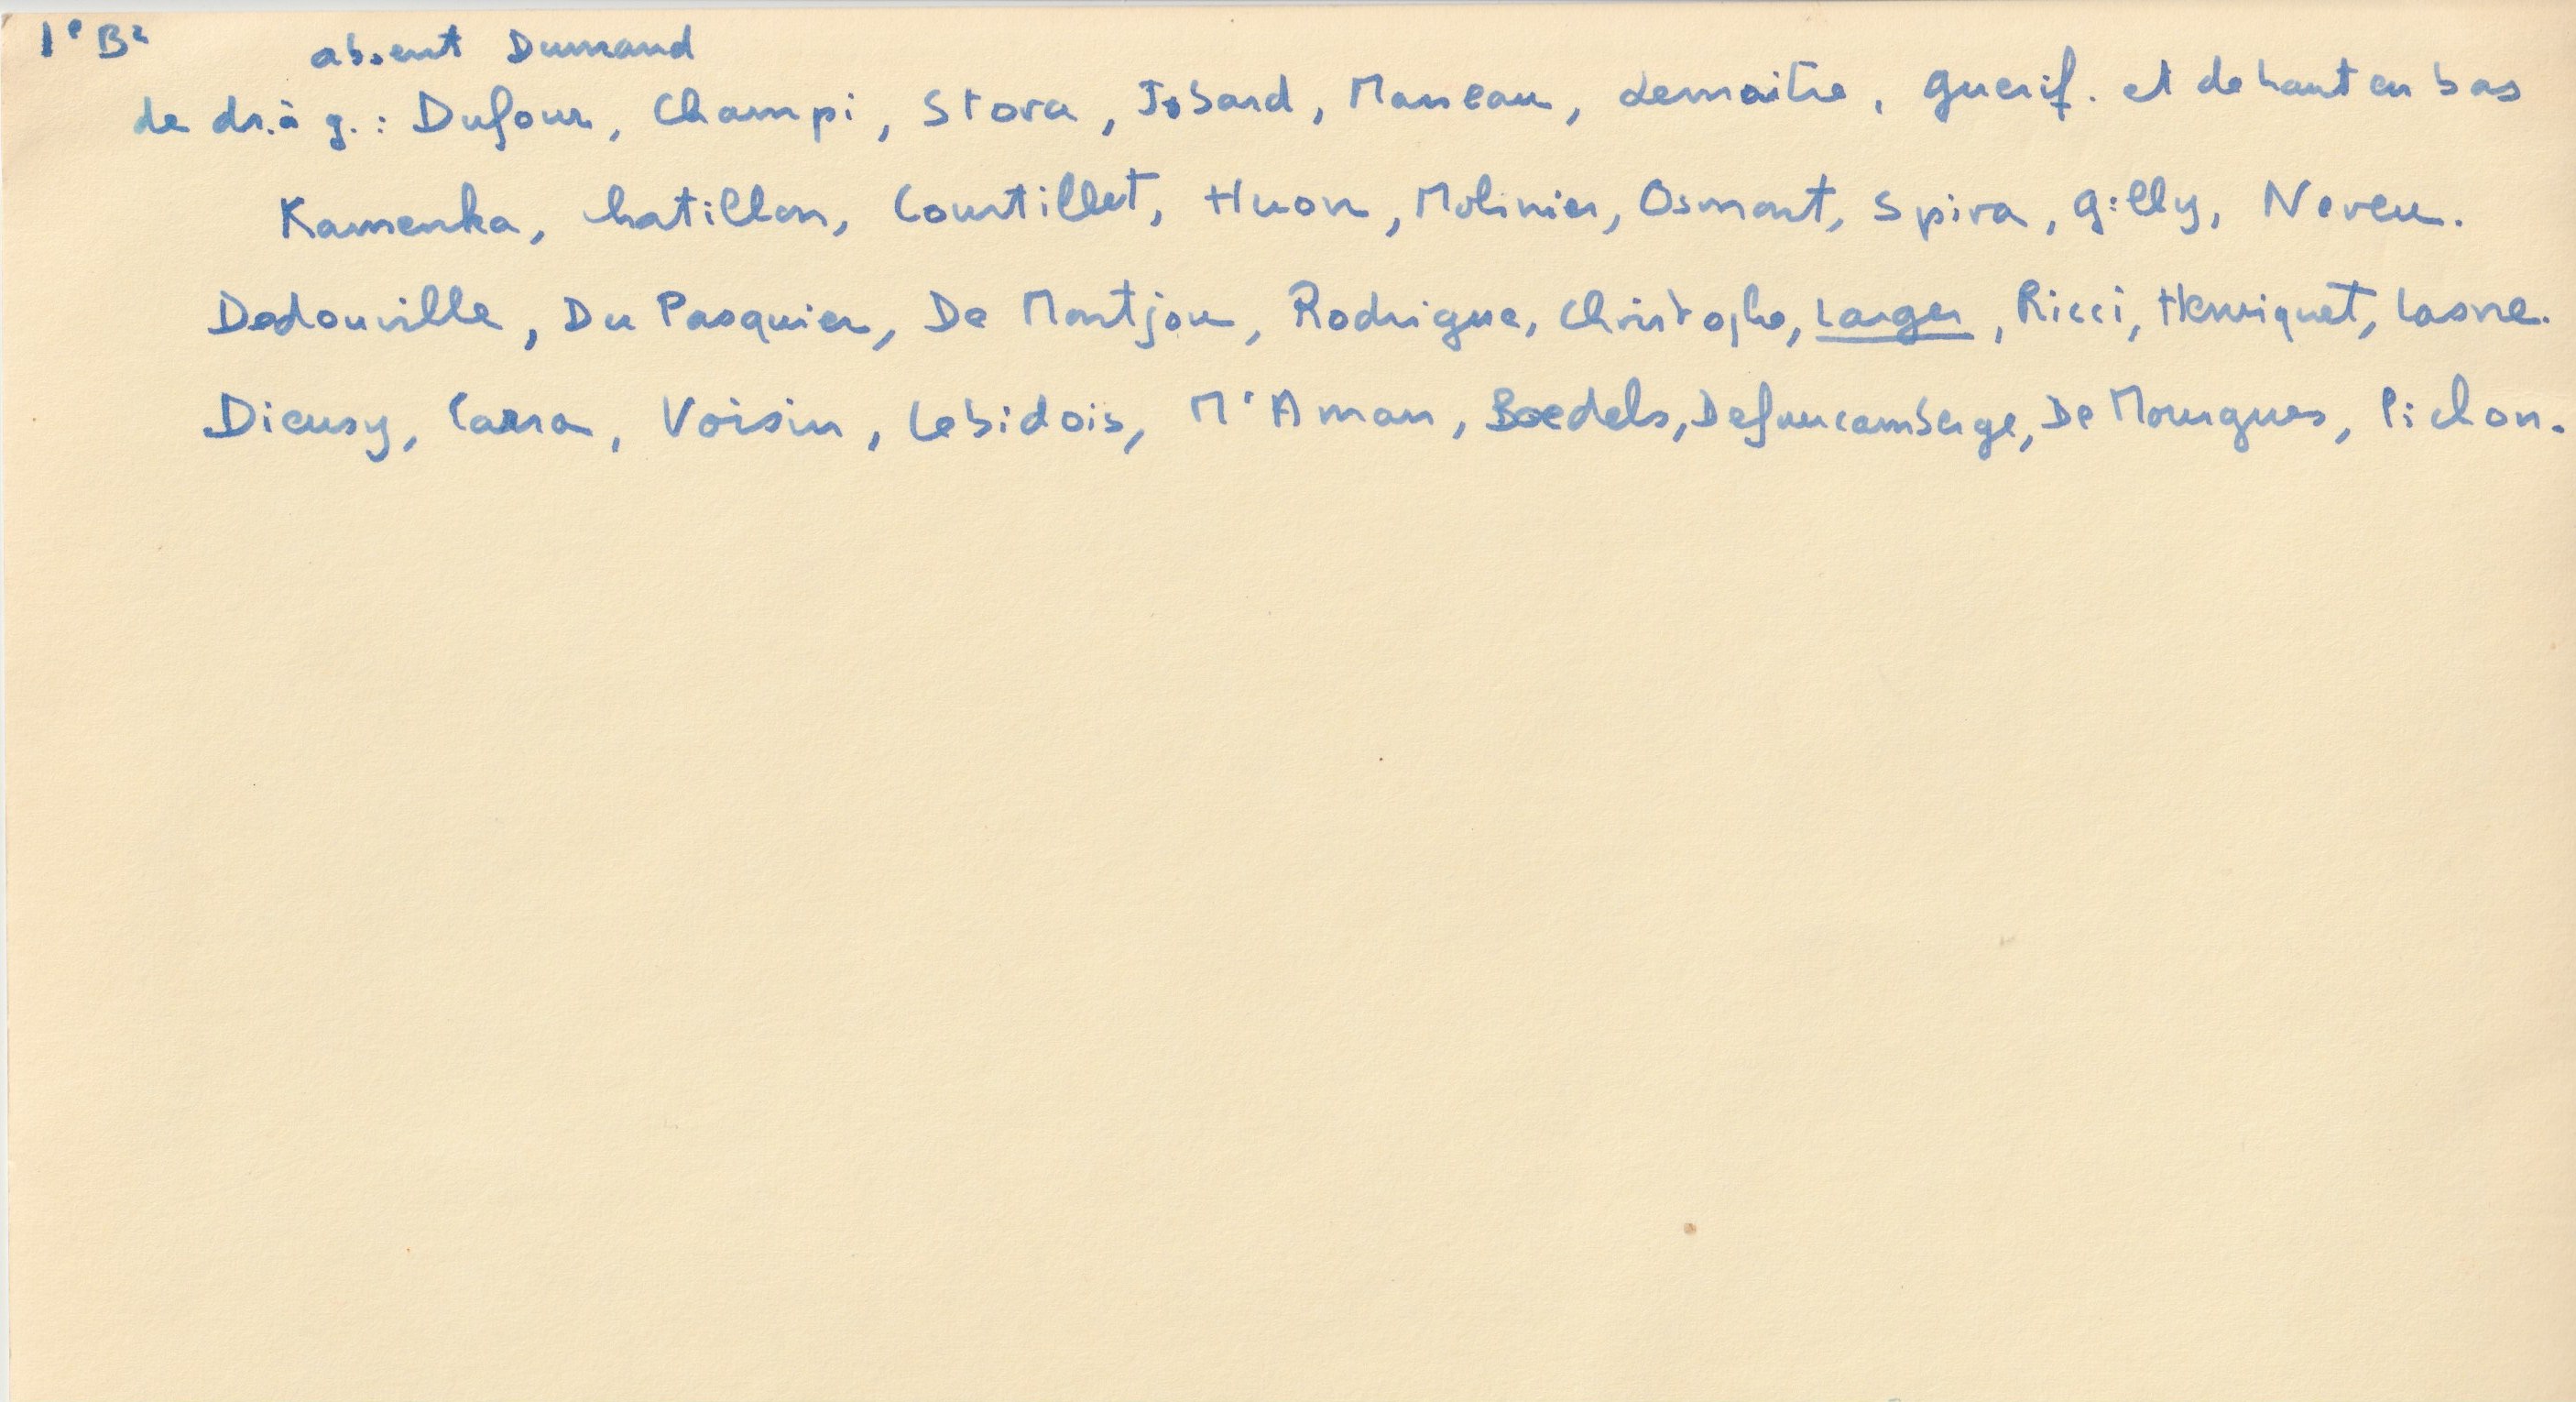 1e B2 absent Durand
de dr. à g. : Dufour, Champi, Stora, Jobard, Manceau, Lemaitre, Guerif. et de haut en bas
Kamenka, Chatillon, Courtillet, Huon, Molinier, Osmont, Spira, Gilly, Neveu.
Dedouville, Du Pasquier, De Montjou, Rodrigue, Christophe, Larger, Ricci, Henriquet, Lasne.
Dieusy, Carra, Voisin, Lebidois, Mr Aman, Boedels, De Mourgues, Pichon.